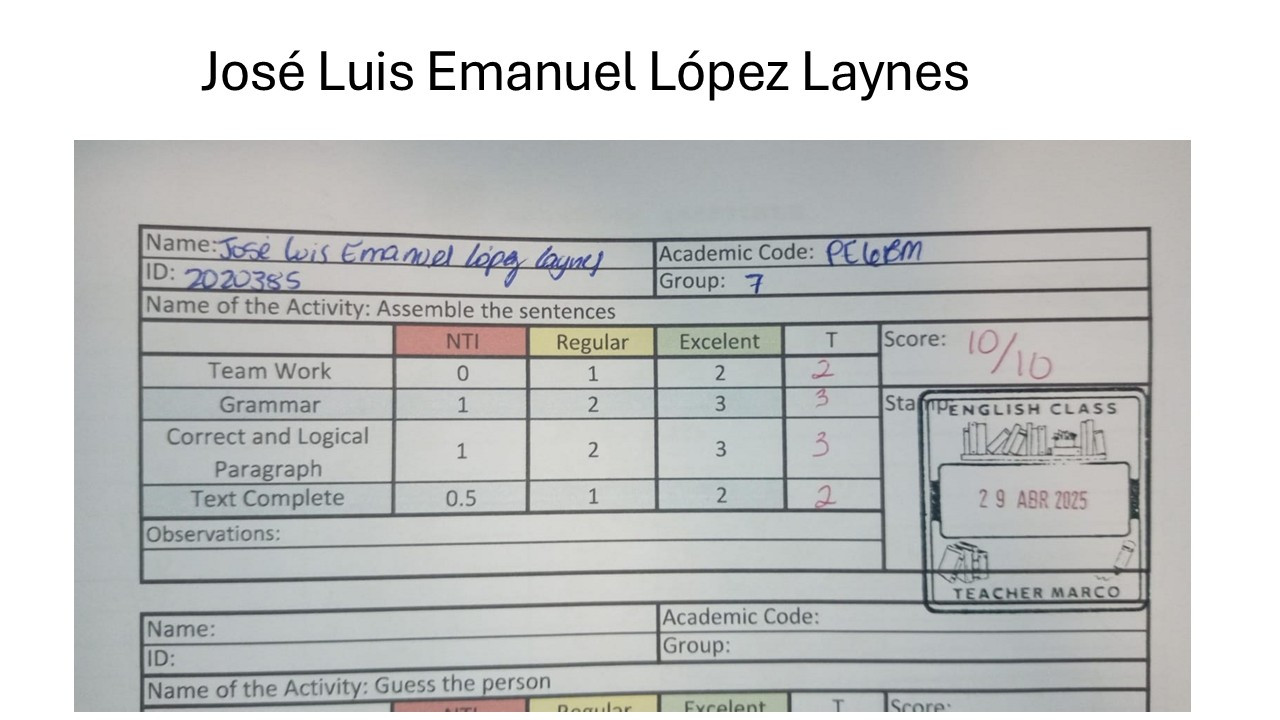 José Luis Emanuel López Laynes
Name: José Luis Emanuel López Laynes
Academic Code: PE6BM
ID: 2020385
Group: 7
Name of the Activity: Assemble the sentences
NTI Regular Excelent T Score: 10/10
Team Work 0 1 2 2
Grammar 1 2 3 3 Stamp:
Correct and Logical
Paragraph
1 2 3 3
Text Complete 0.5 1 2 2
Observations:
ENGLISH CLASS
29 ABR 2025
TEACHER MARCO
Name:
Academic Code:
ID:
Group:
Name of the Activity: Guess the person
NTI Regular Excelent T Score: